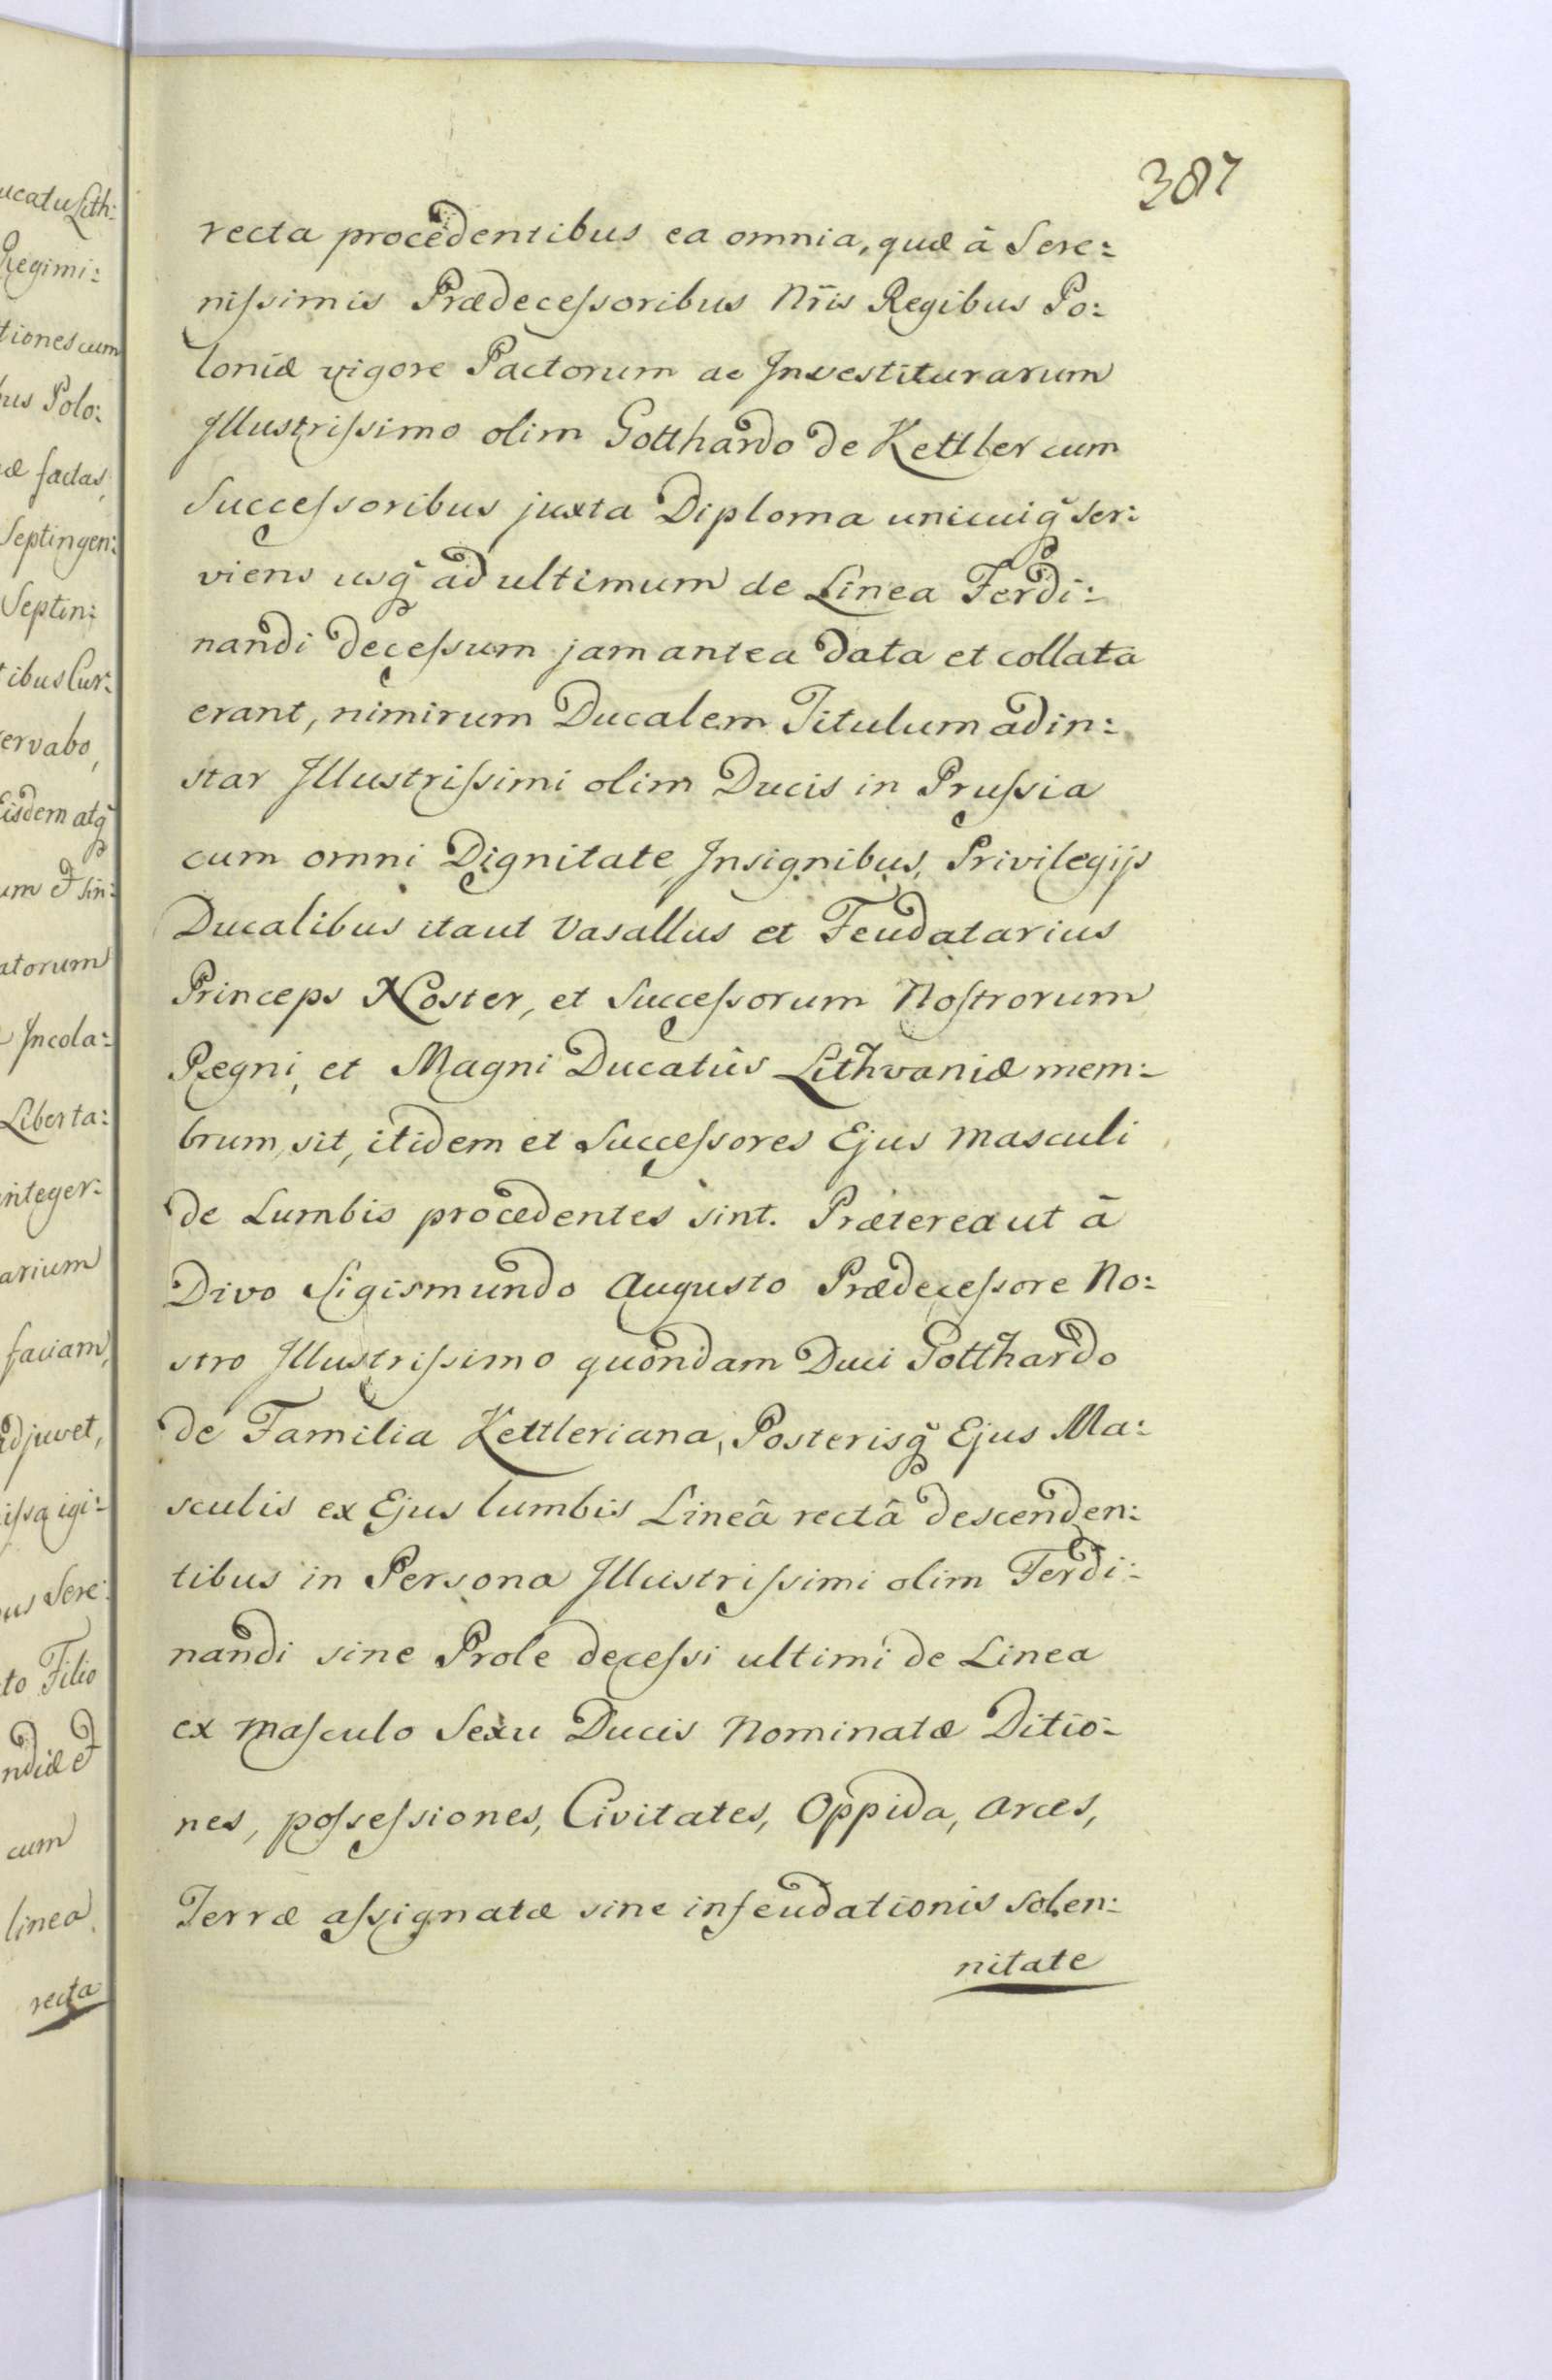 387
recta procedentibus ea omnia, quæ â Sere:
niſsimis Prædeceſsoribus Nr̃is Regibus Po:
loniæ vigore Pactorum ac Investiturarum
Illustriſsimo olim Gotthardo de Kettler cum
Succeſsoribus juxta Diploma unicuiq̃ ser:
viens usq̃ ad ultimum de Linea Ferdi:
nandi deceſsum jam antea data et collata
erant, nimirum Ducalem Titulum ad in:
star Illustriſsimi olim Ducis in Pruſsia
cum omni Dignitate, Insignibus, Privilegijs
Ducalibus itaut Vasallus et Feudatarius
Princeps Noster, et Succeſsorum Noſtrorum
Regni, et Magni Ducatûs Lithvaniæ mem:
brum, sit, itidem et Succeſsores Ejus Masculi
de Lumbis procedentes sint. Præterea ut â
Divo Sigismundo Augusto Prædeceſsore No:
stro Illustriſsimo quondam Duci Gotthardo
de Familia Kettleriana, Posterisq̃ Ejus Ma:
sculis ex Ejus lumbis Lineâ rectâ descenden:
tibus in Persona Illustriſsimi olim Ferdi:
nandi sine Prole deceſsi ultimi de Linea
ex Maſculo Sexu Ducis Nominatæ Ditio:
nes, poſseſsiones, Civitates, Oppida, Arces,
Terræ aſsignatæ sine infeudationis solen:
nitate
ucatu Lith:
Regimi:
tiones cum
bus Polo:
æ factas,
Septingen:
Septin:
tibus Cur:
servabo,
Eisdem atq̃
um et sin:
atorum
Incola:
Liberta:
integer:
arium
faciam,
adjuvet,
iſsa igi:
us Sere:
to Filio
ndiæ et
cum
linea
recta